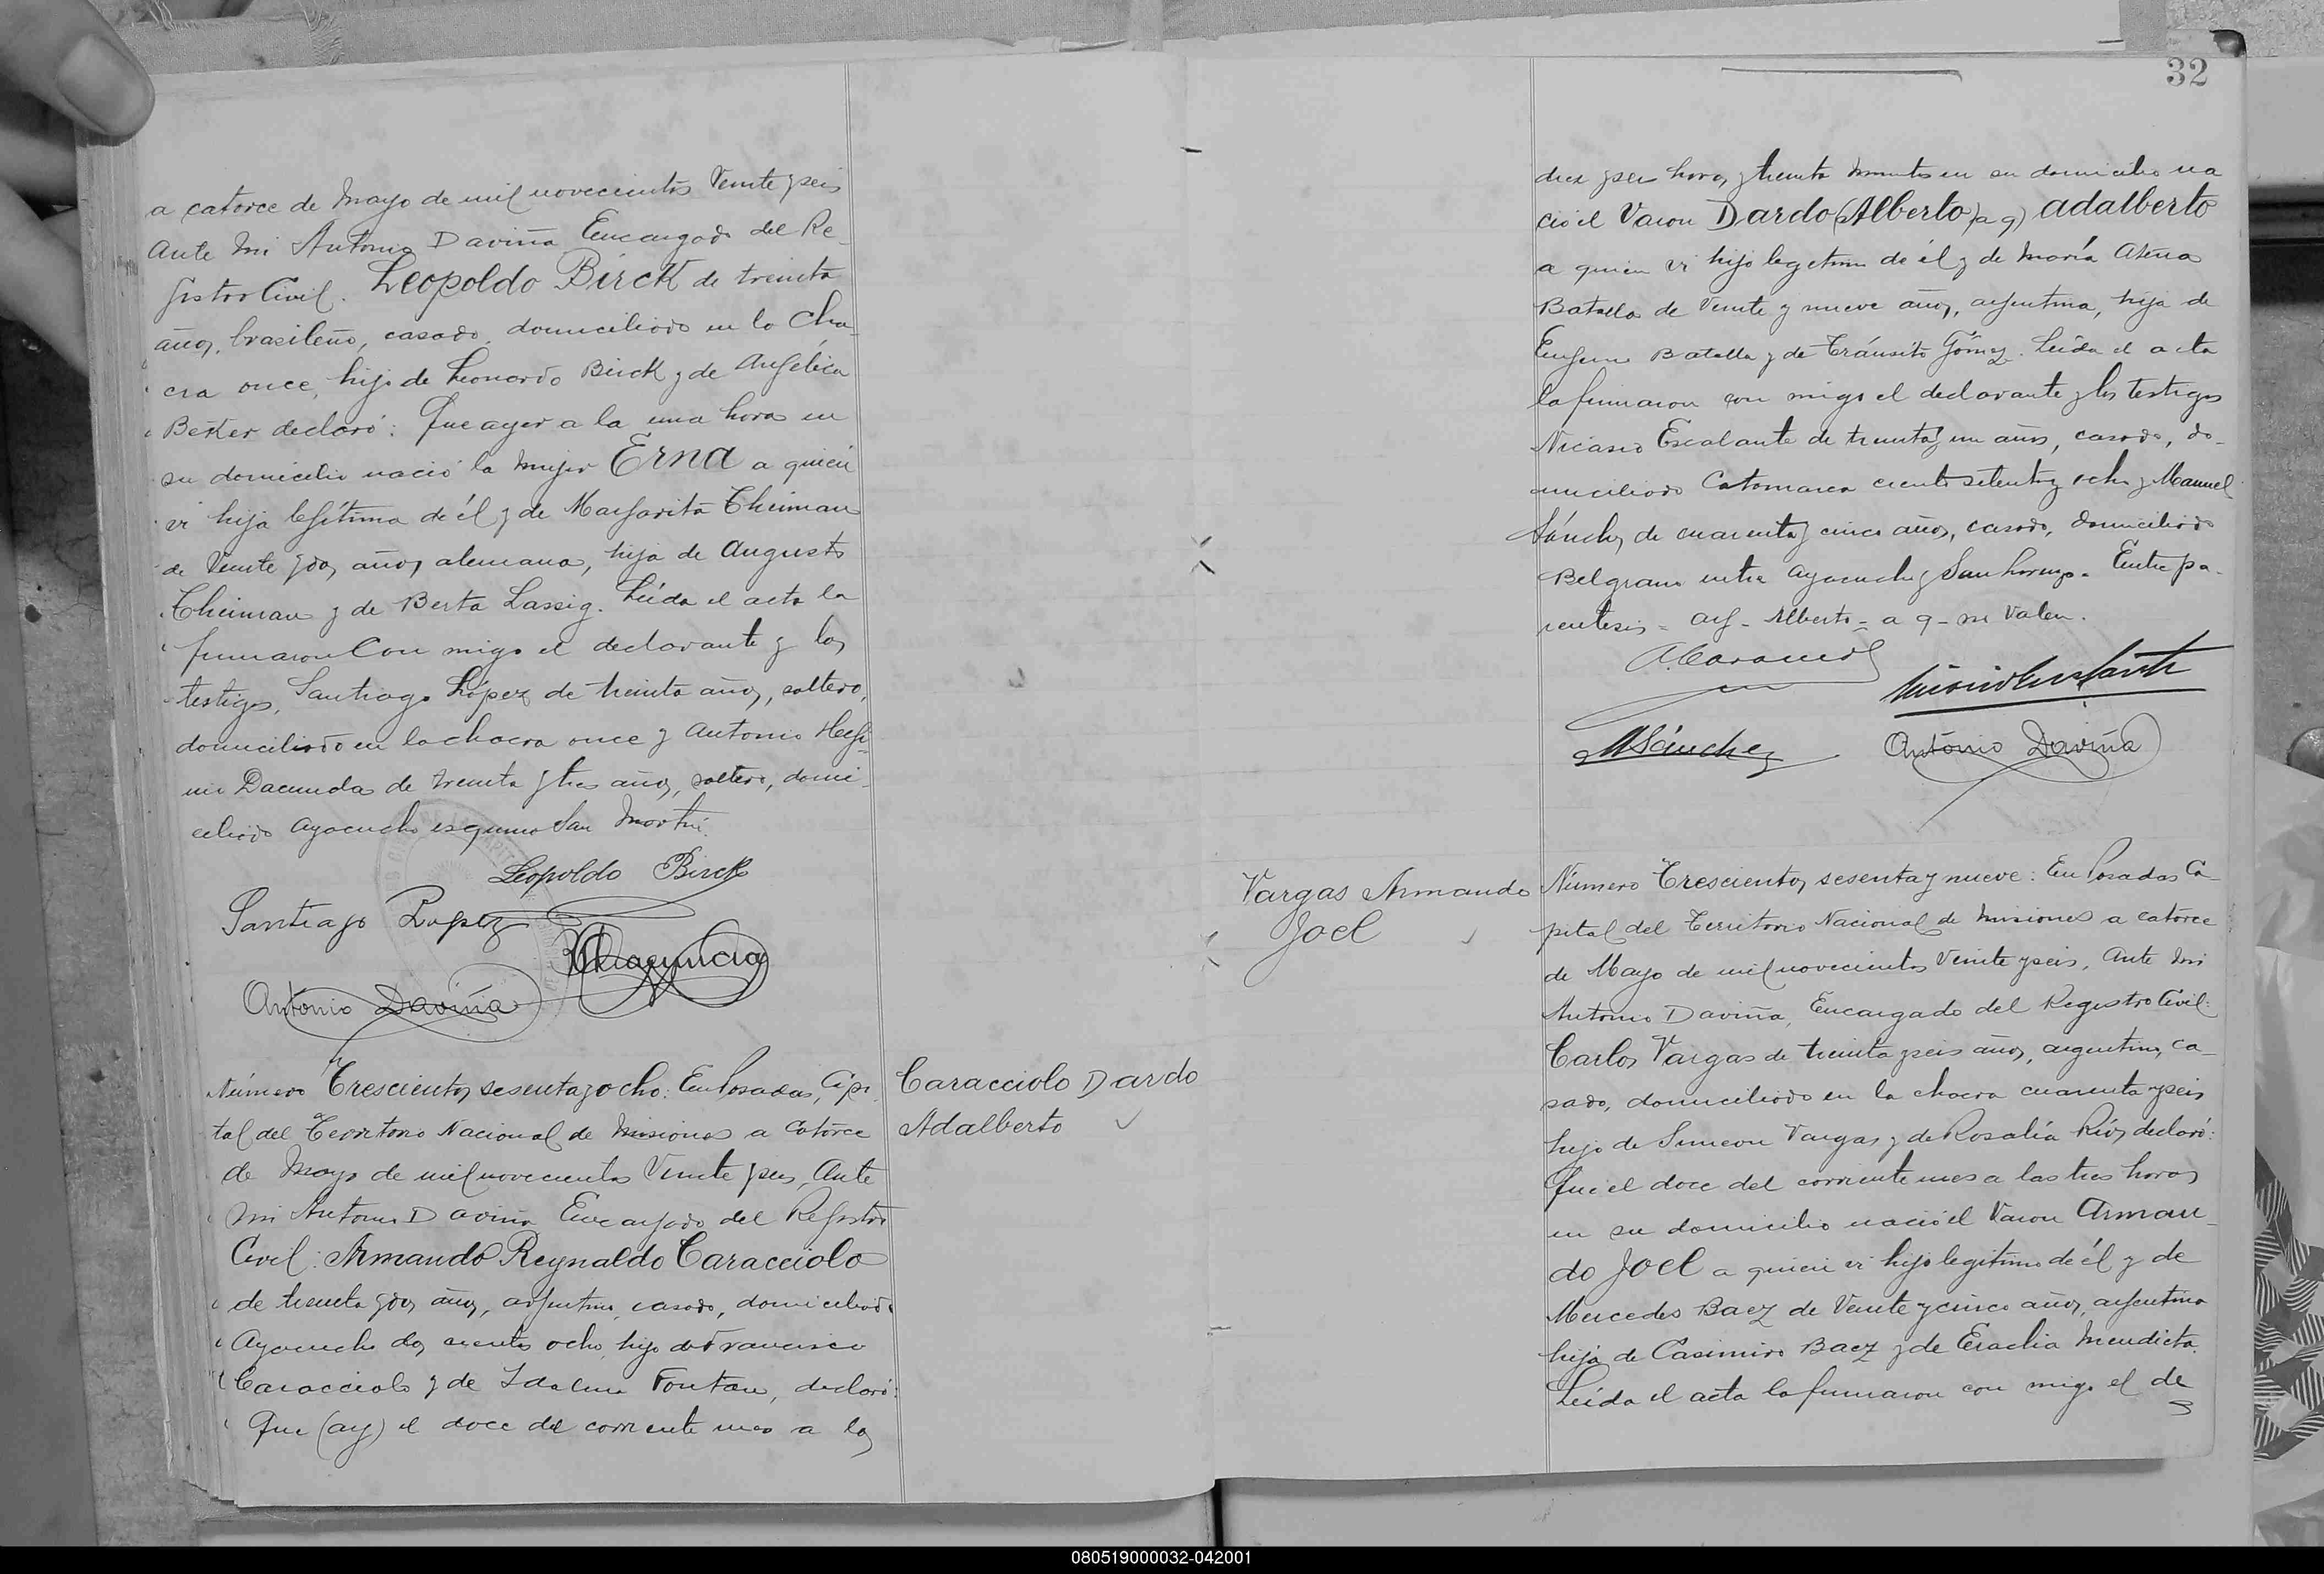 a catorce de Mayo de mil novecientos Veinte y seis
Ante mi Antonio Daviña Encargado del Re-
gistro Civil. Leopoldo Birck de treinta
años, brasileño, casado, domiciliado en la Cha-
cra once, hijo de Leonardo Birck y de Angélica
Besker declaró: Que ayer a la una hora en
su domicilio nació la mujer Erna a quien
vi hija legítima de él y de Margarita Theiman
de Veinte y dos años alemana, hija de Augusto
Theiman y de Berta Lassig. Leida el acta la
firmaron Con migo el declarante y los
testigos, Santiago López de treinta años, soltero,
domiciliado en la chacra once y Antonio
Dacunda de treinta y tres años, soltero, domi-
ciliado Ayacucho esquina San Martin.
Leopoldo Birck
Santiago Lopez
Antonio Daviña
Número Trescientos sesenta y ocho: En Posadas, Capi-
tal del Territorio Nacional de Misiones a catorce
de Mayo de mil novecientos Veinte y seis, Ante
mi Antonio Daviña Encargado del Registro
Civil: Armando Reynaldo Caracciolo
de treinta y dos años, argentino, casado, domiciliado
Ayacucho dos cientos ocho, hijo de Francisco
Caracciolo y de Idalina Fontan, declaró:
Que (ay) el doce del corriente mes a las
Caracciolo Dardo
Adalberto
32
diez y seis horas y treinta minutos en su domicilio na
ció el Varon Dardo (Alberto) (a q) Adalberto
a quien vi hijo legitimo de él y de María Atena
Batalla de Veinte y nueve años, argentina, hija de
Eugenio Batalla y de Tránsito Gómez. Leida el acta
la firmaron con migo el declarante y los testigos
Nicasio Escalante de treinta y un años, casado, do-
miciliado Catamarca ciento setenta y ocho y Manuel
Sánchez de cuarenta y cinco años, casado, domiciliado
Belgrano entre Ayacucho y San Lorenzo. Entre pa-
rentesis = ay - Alberto = a q - no Valen.
MSánchez
Antonio Daviña
Vargas Armando
Joel
Número Trescientos sesenta y nueve: En Posadas Ca
pital del Territorio Nacional de Misiones a catorce
de Mayo de mil novecientos Veinte y seis, Ante mi
Antonio Daviña, Encargado del Registro Civil:
Carlos Vargas de treinta y seis años, argentino, ca-
sado, domiciliado en la chacra cuarenta y seis
hijo de Simeon Vargas y de Rosalía Ríos declaró:
Que el doce del corriente mes a las tres horas
en su domicilio nació el Varon Arman-
do Joel a quien vi hijo legitimo de él y de
Mercedes Baez de Veinte y cinco años, argentina
hija de Casimiro Baez y de Eraclia Mendieta.
Leida el acta la firmaron con migo el de
080519000032-042001